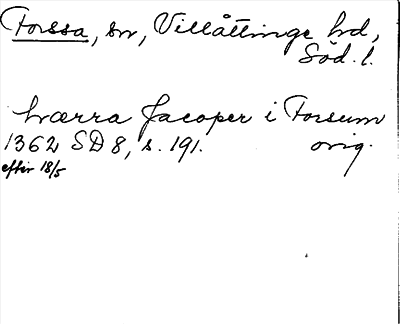 Forssa, sn, Villåttinge hd,
Söd. l.
hærra Jacoper i Forsum
1362 SD 8, s. 191. orig.
efter 18/5